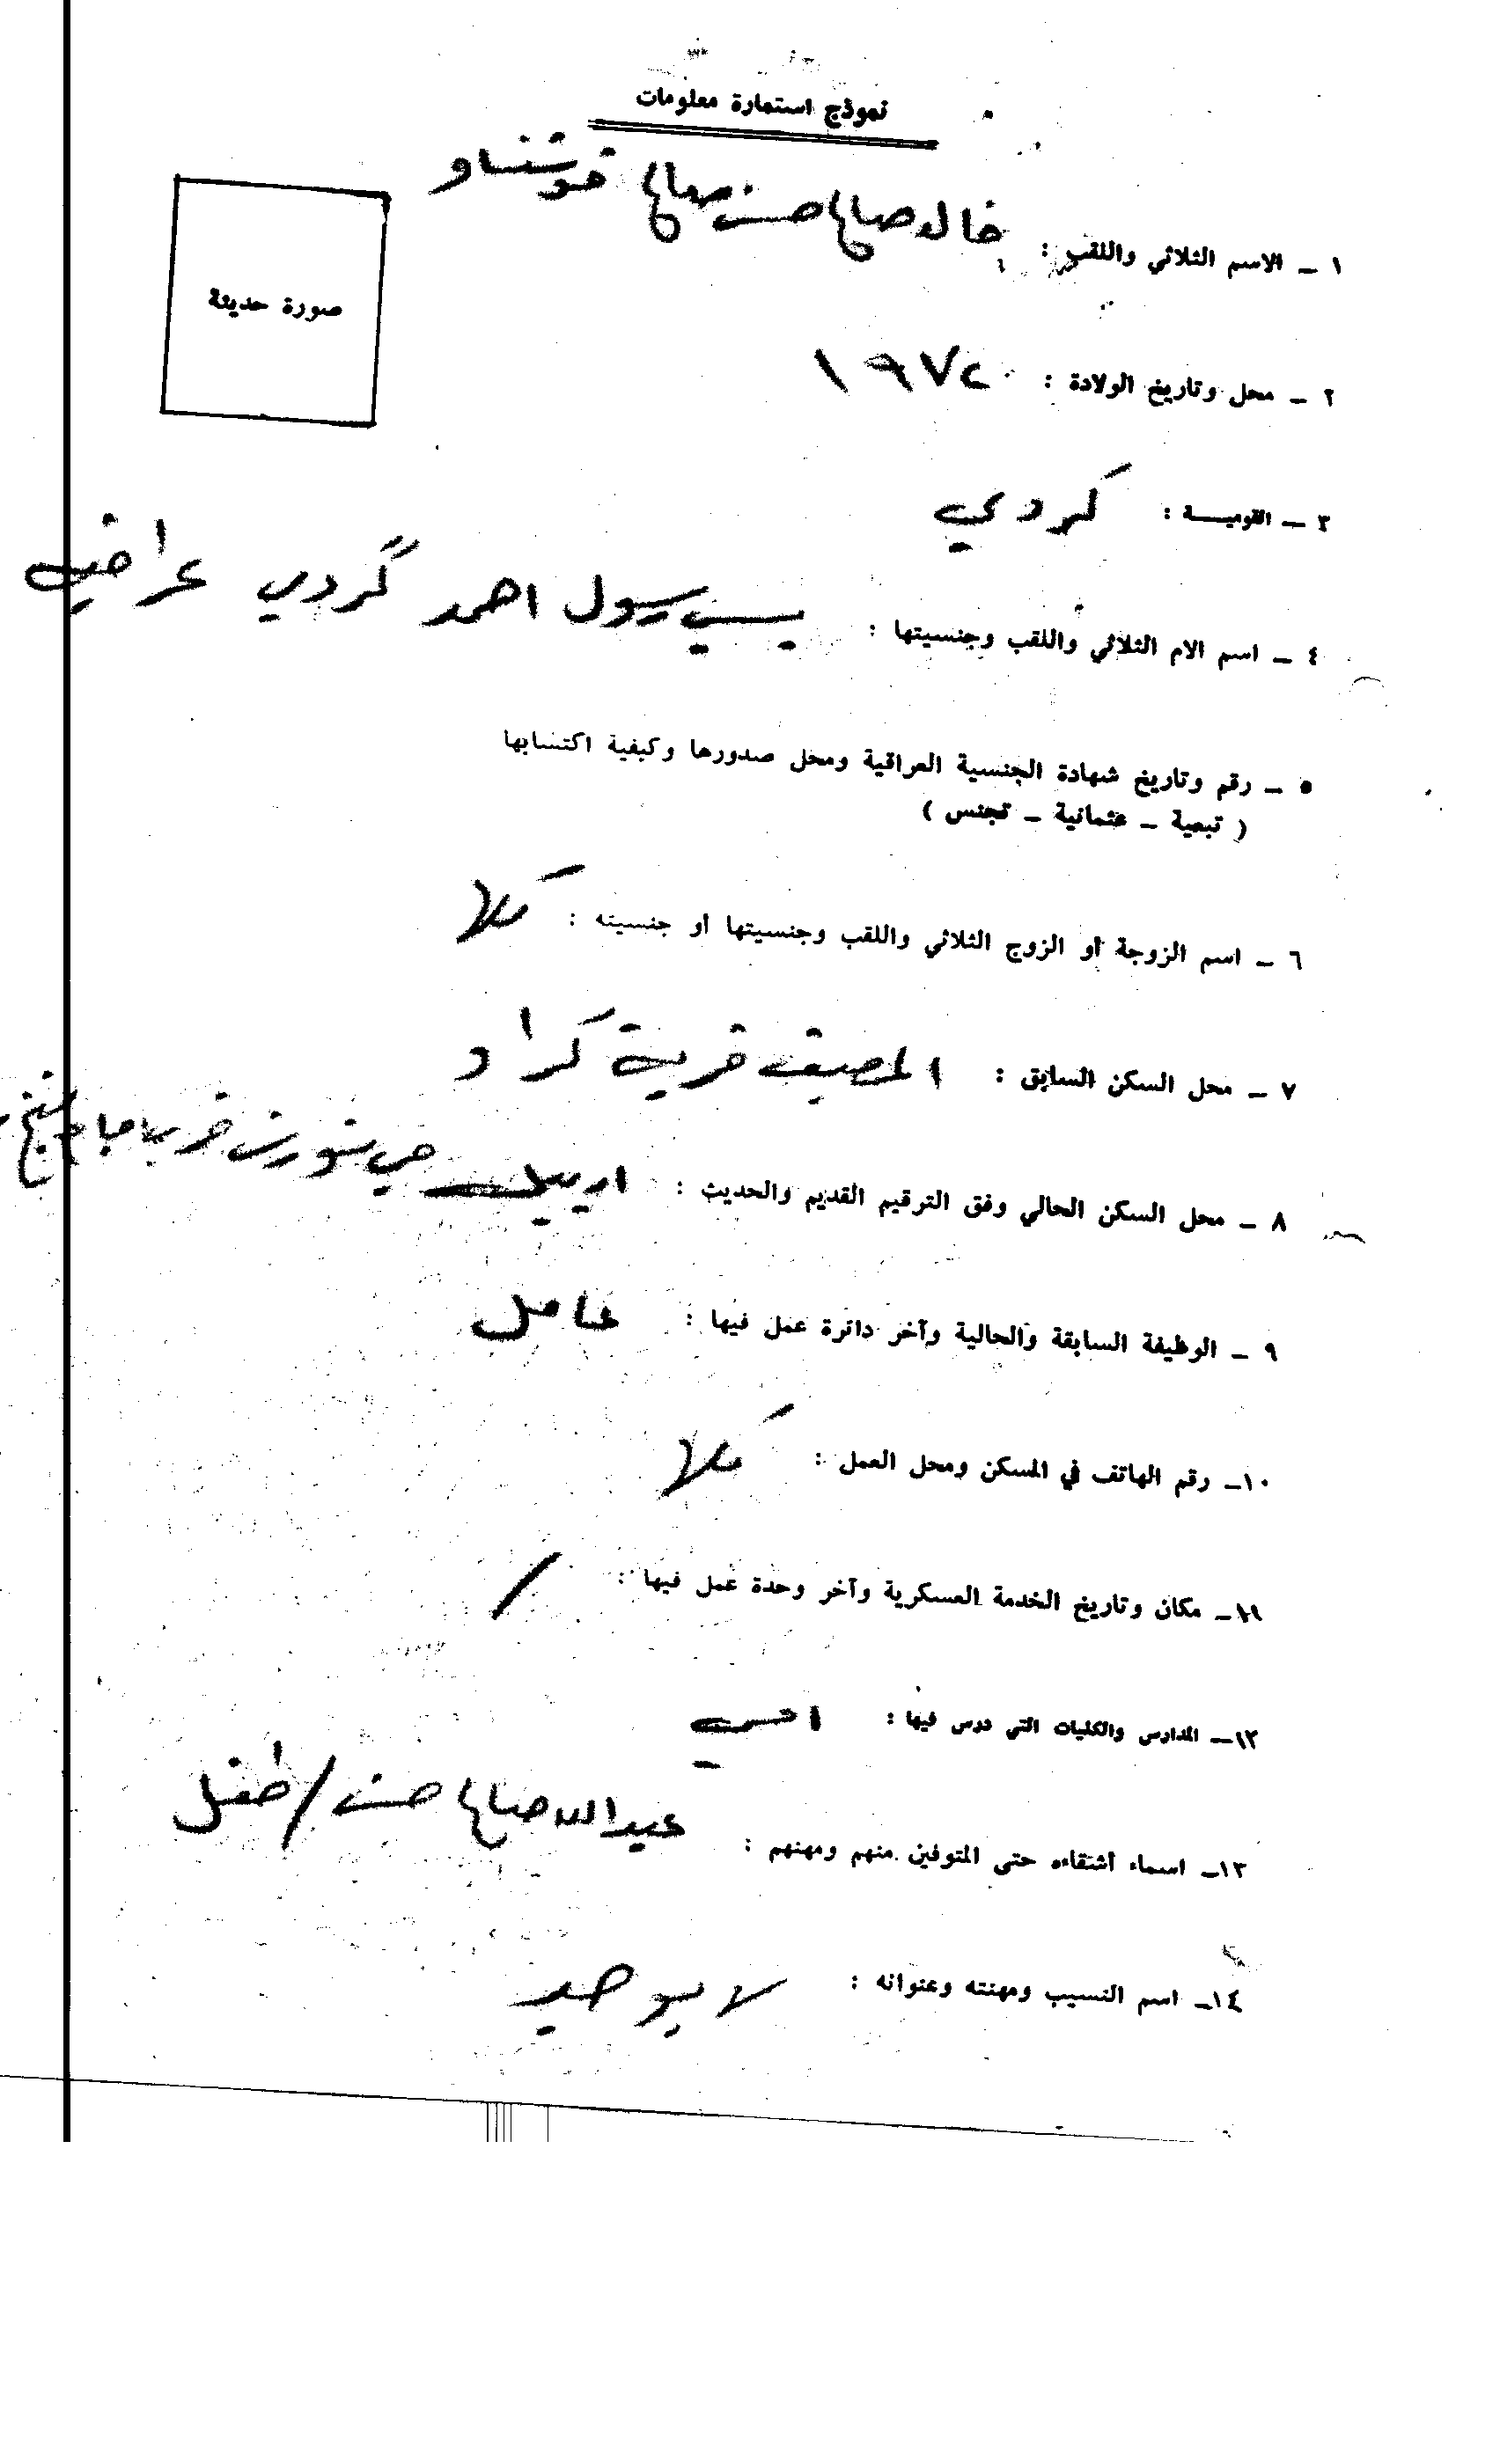 نموذج استمارة معلومات
صورة حديثة
١ ـ الاسم الثلاثي واللقب : خالد صالح حسن صالح خوشناو
٢ ـ محل وتاريخ الولادة : ١٩٧٢
٣ ـ القوميـــة : كردي
٤ ـ اسم الام الثلاثي واللقب وجنسيتها : رسول احمد گردي عراقي
٥ ـ رقم وتاريخ شهادة الجنسية العراقية ومحل صدورها وكيفية اكتسابها
( تبعية ـ عثمانية ـ تجنس )
٦ ـ اسم الزوجة أو الزوج الثلاثي واللقب وجنسيتها أو جنسيته : كلا
٧ ـ محل السكن السابق : المصيف قرية كراد
٨ ـ محل السكن الحالي وفق الترقيم القديم والحديث : اربيل حي شورش قرب
٩ ـ الوظيفة السابقة والحالية وآخر دائرة عمل فيها : عامل
١٠ـ رقم الهاتف في المسكن ومحل العمل : كلا
١١ـ مكان وتاريخ الخدمة العسكرية وآخر وحدة عمل فيها : /
١٢ـ المدارس والكليات التي درس فيها : امي
١٣ـ اسماء أشقاءه حتى المتوفين منهم ومهنهم : عبدالله صالح حسن / طفل
١٤ـ اسم النسيب ومهنته وعنوانه : لا يوجد